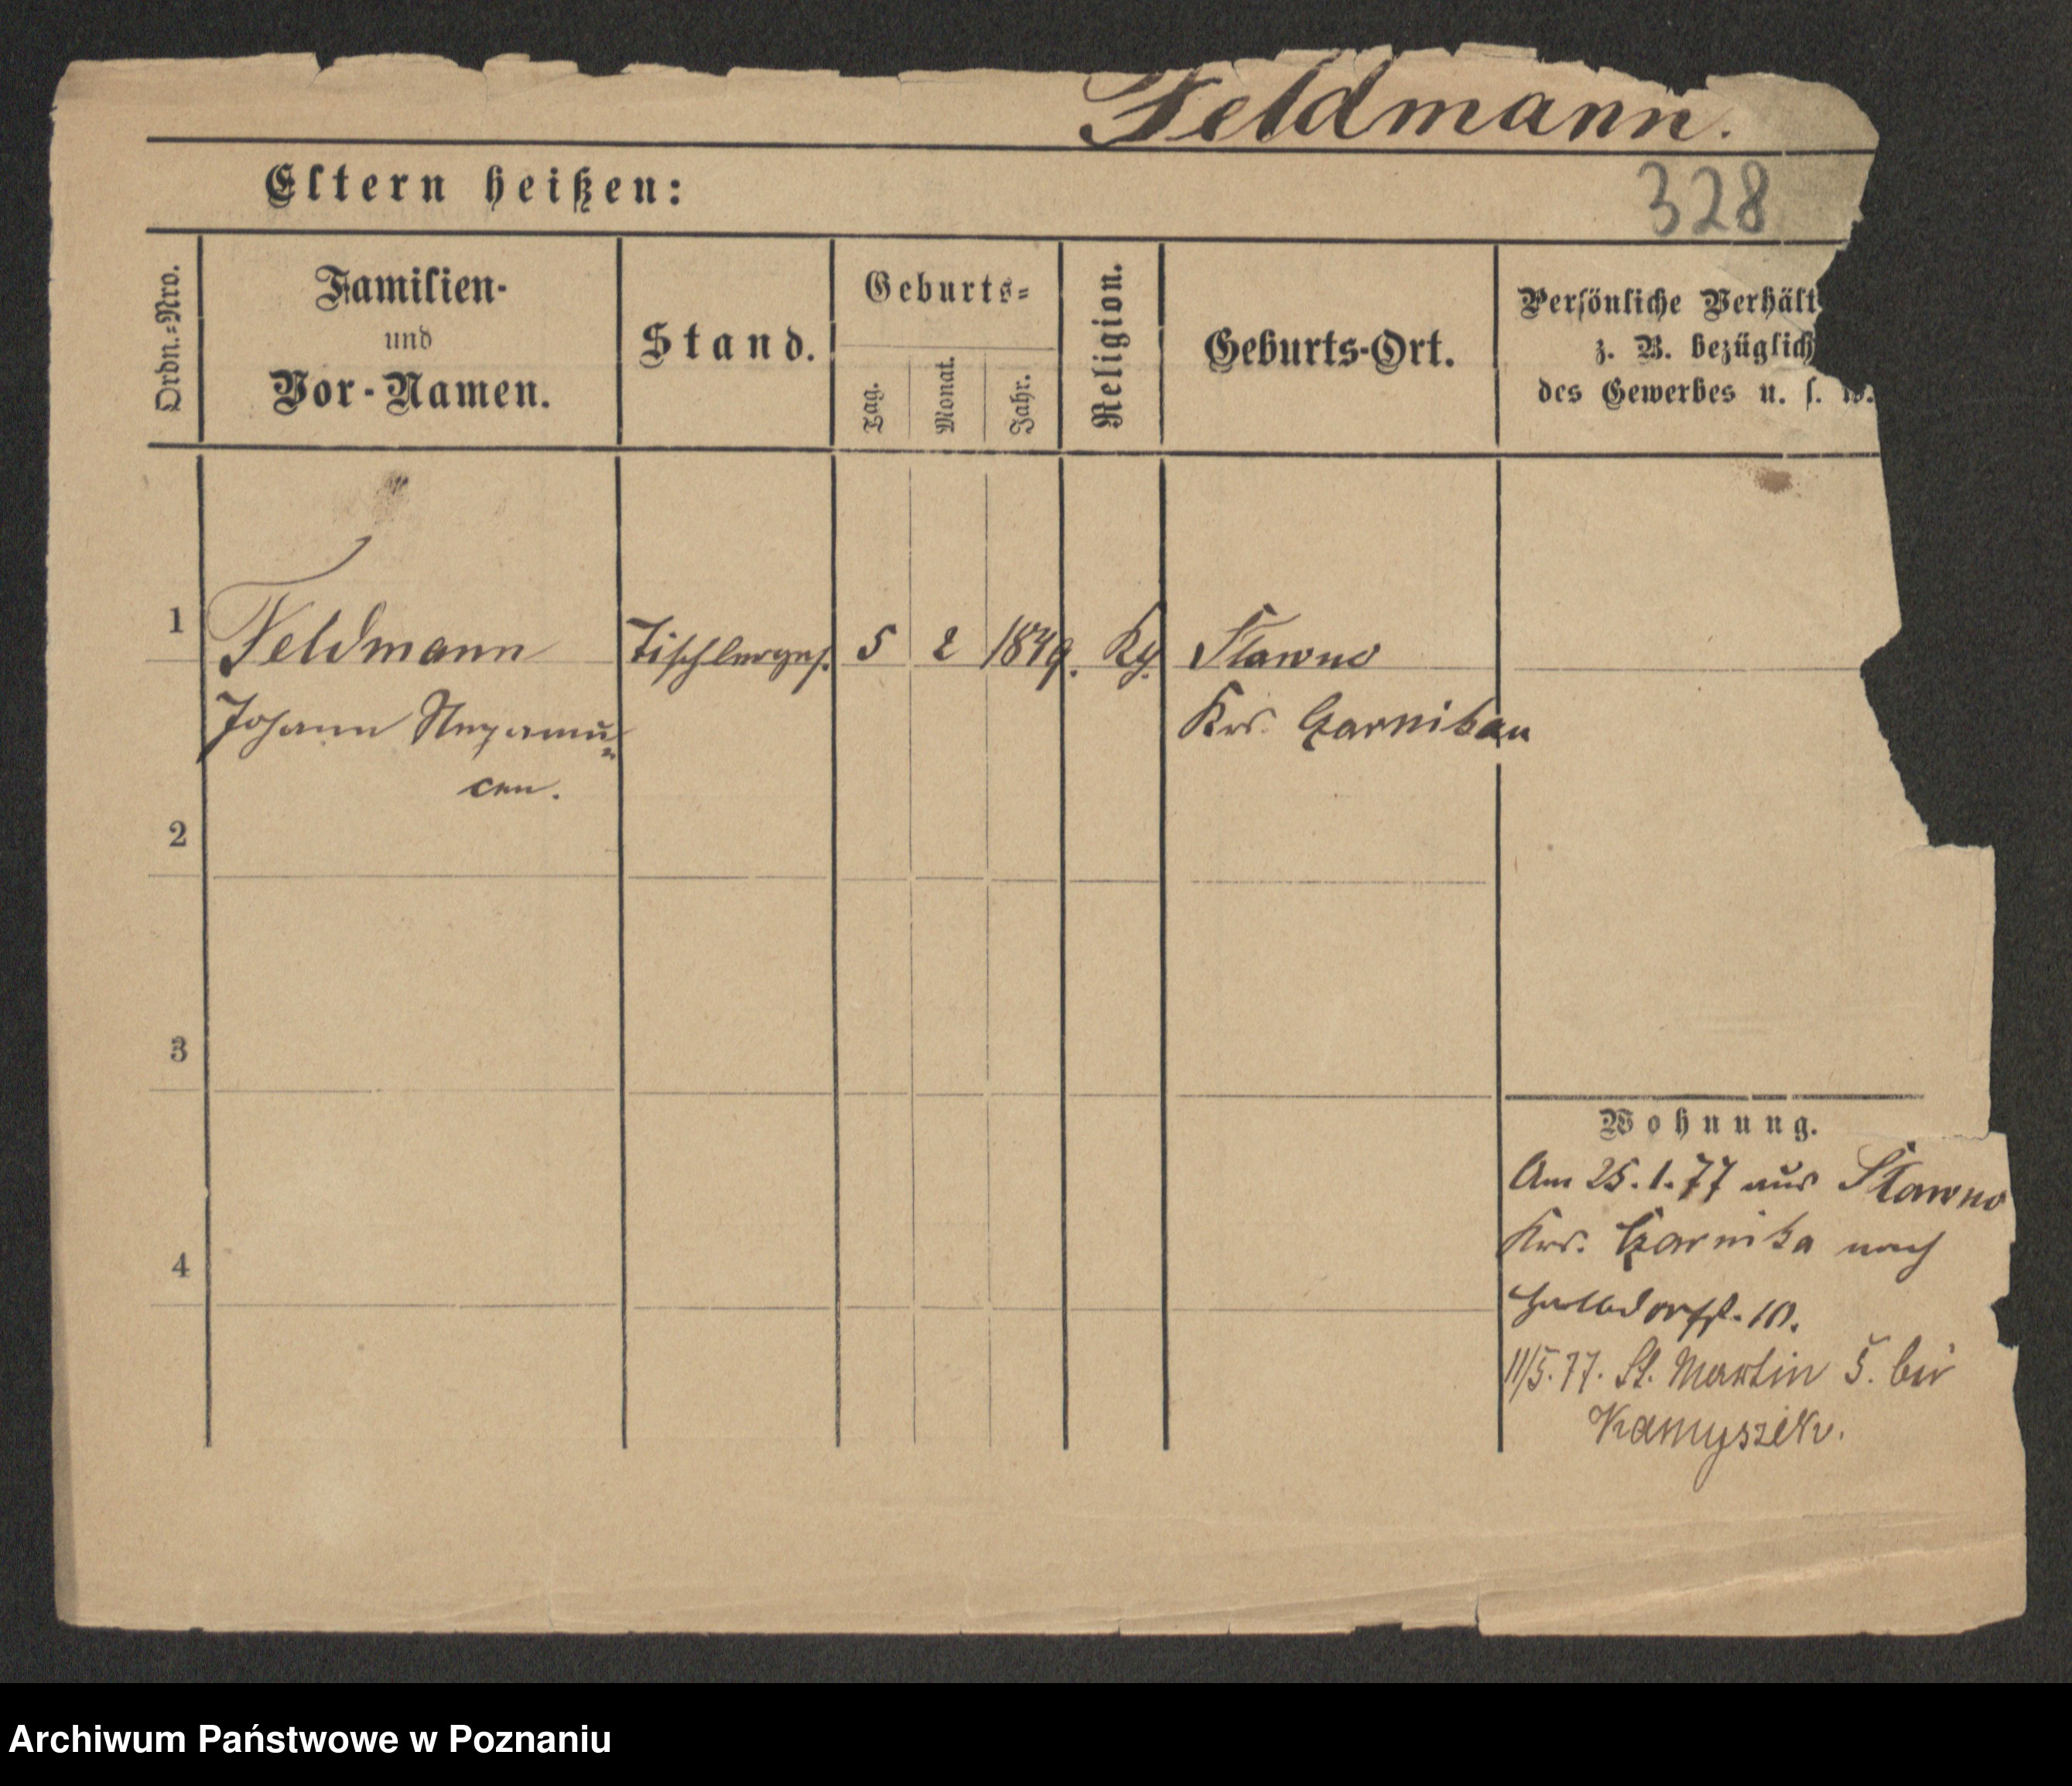 Feldmann.
Eltern heißen:
328
Ordn.=Nro.
Familien-
und
Vor-Namen.
Stand.
Geburts=
Tag.
Monat.
Jahr.
Religion.
Geburts-Ort.
Persönliche Verhält
z. B. bezüglich
des Gewerbes u. s. w.
1
Feldmann Tischlerges. 5 2 1849. Stawno
Johann Krs. Czarnikau
cen.
2
3
4
Wohnung.
Am 25.1.77 aus Stawno
Krs. Czarnika nach
Halbdorfst. 10.
11/5.77. St. Martin 5. bei
Kamyszek.
Archiwum Państwowe w Poznaniu